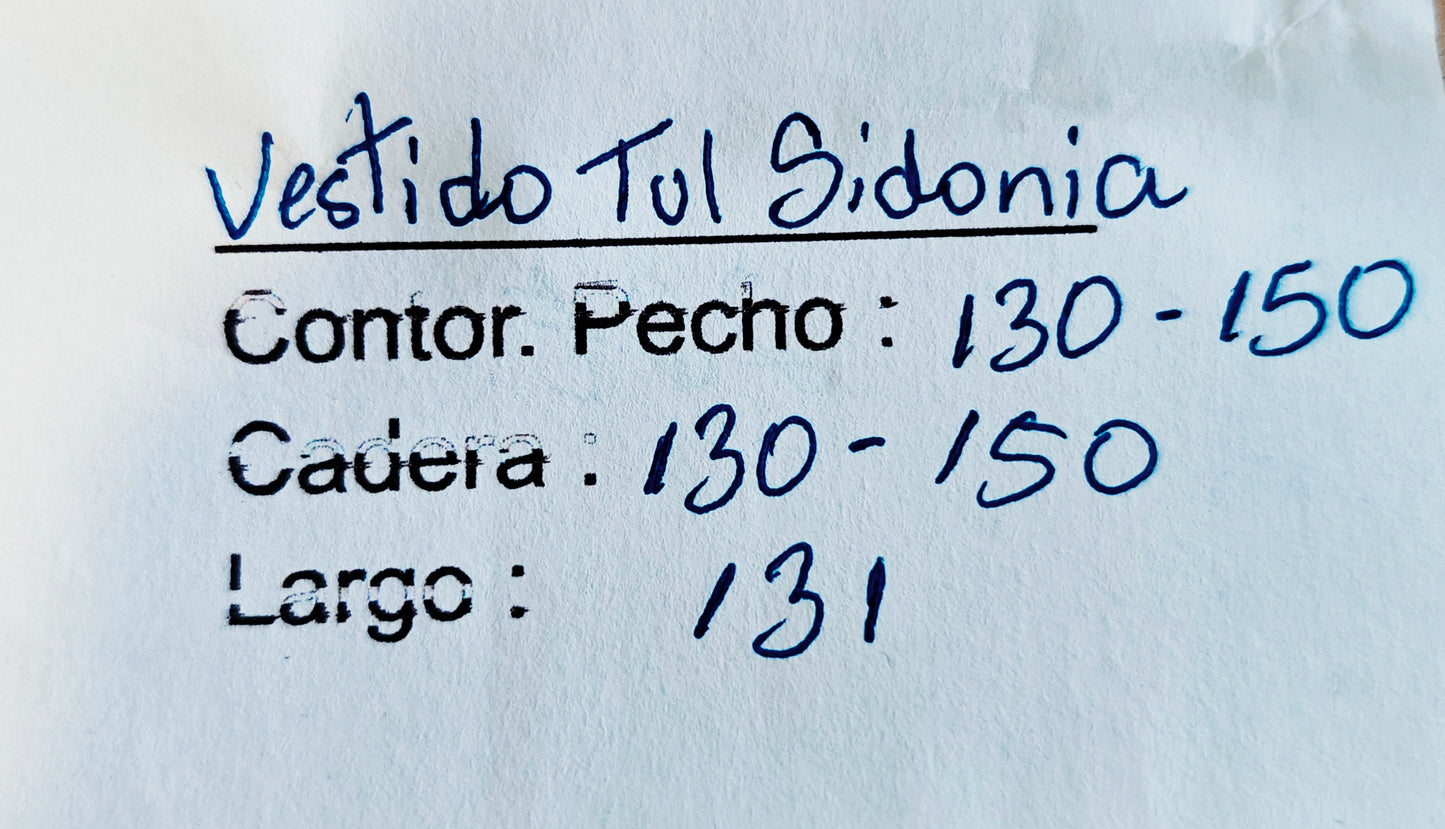 Vestido Tul Sidonia
Contor. Pecho : 130 - 150
Cadera : 130 - 150
Largo : 131